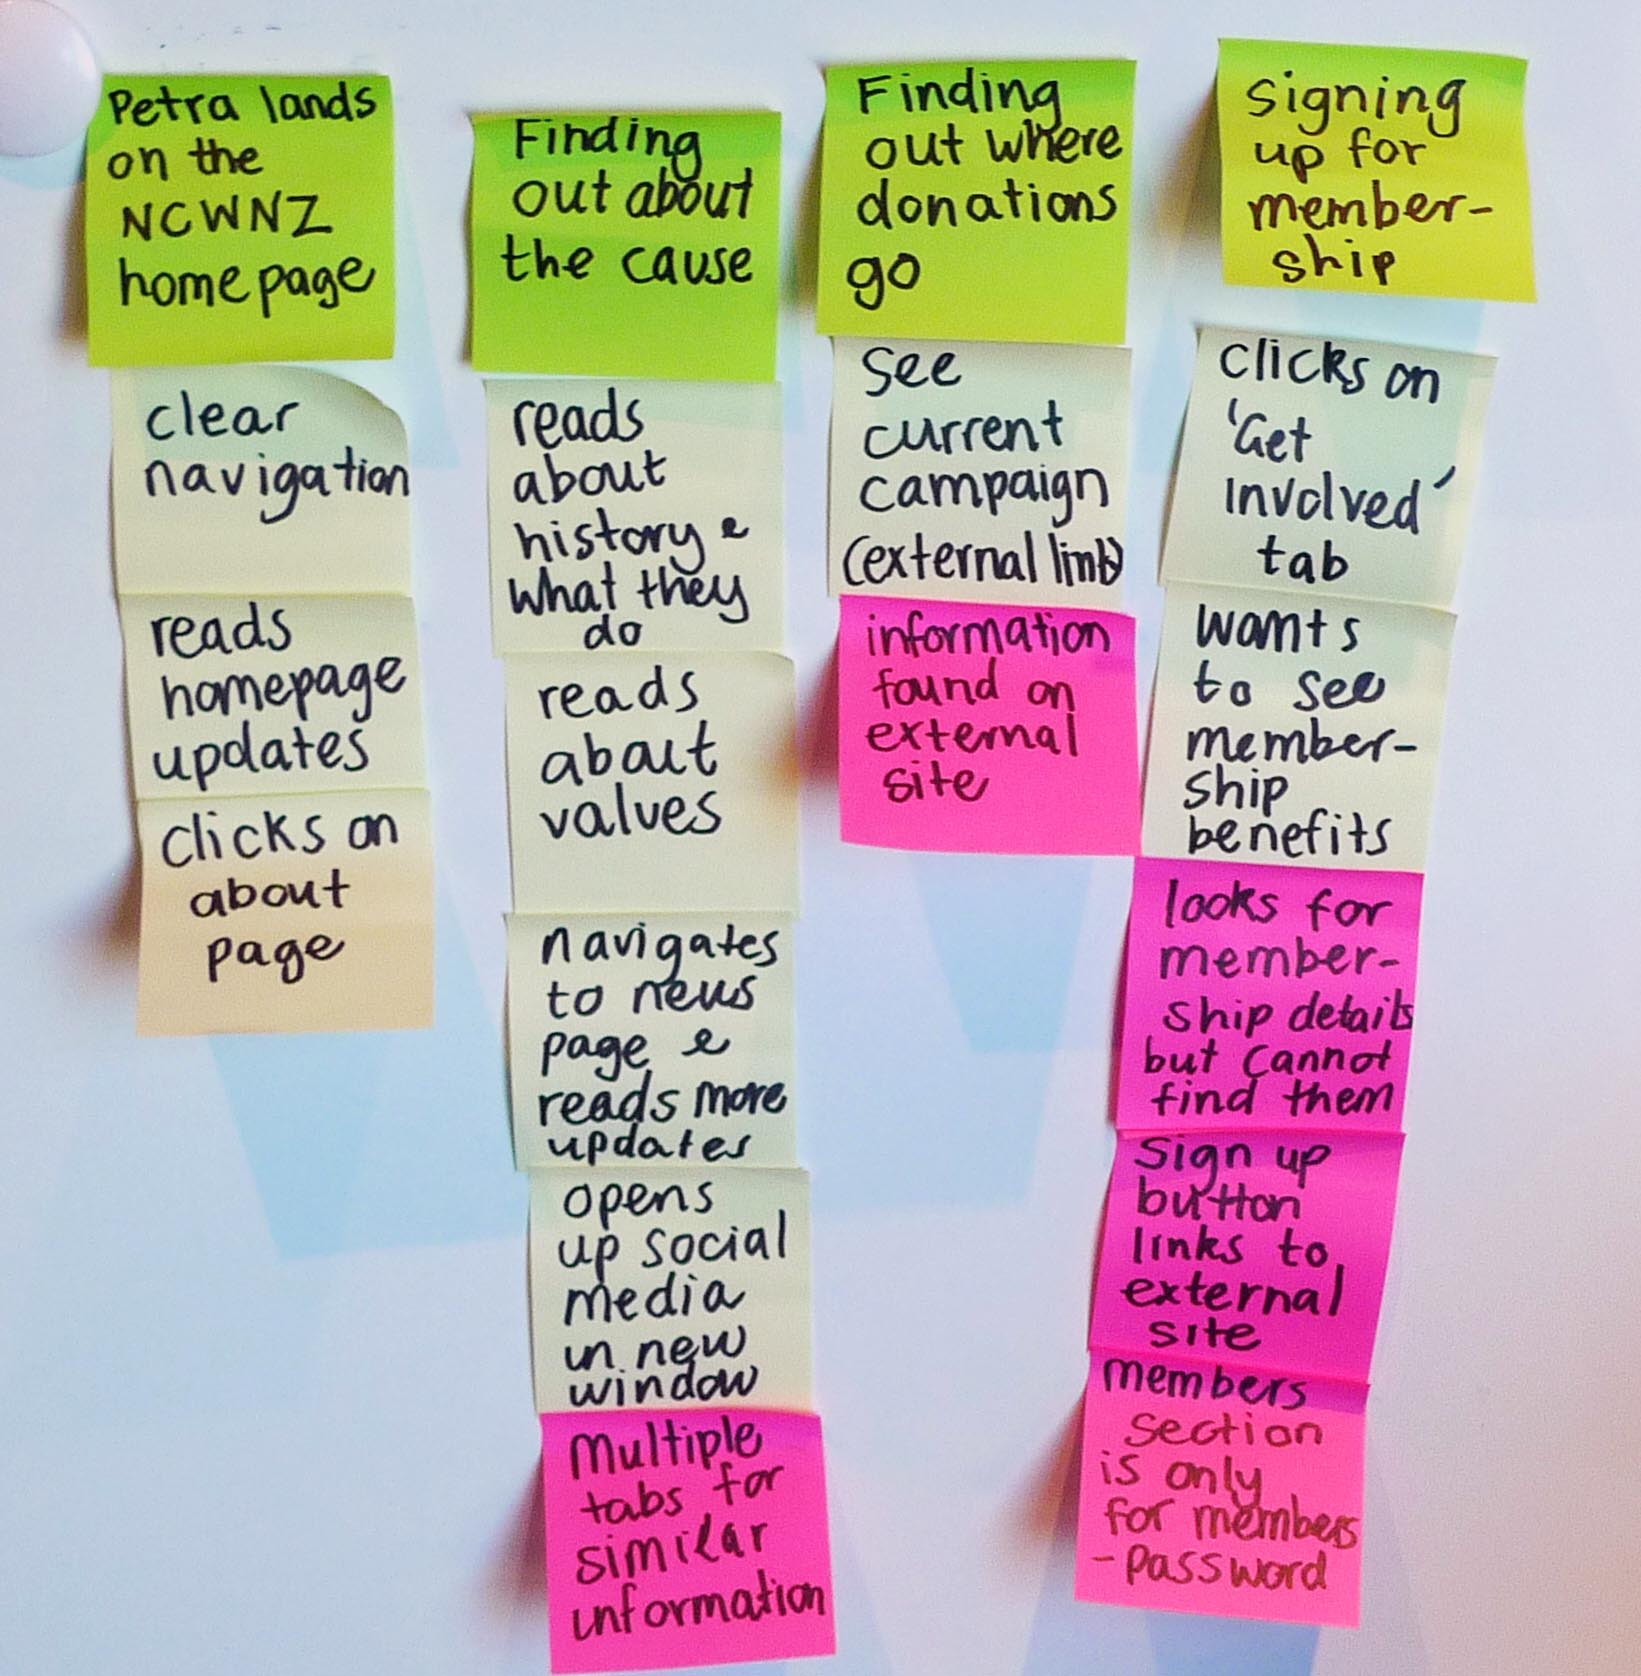 Petra lands
on the
NCWNZ
homepage
clear
navigation
reads
homepage
updates
clicks on
about
page
Finding
out about
the cause
reads
about
history &
what they
do
reads
about
values
navigates
to news
page &
reads more
updates
opens
up social
media
in new
window
Multiple
tabs for
similar
information
Finding
out where
donations
go
see
current
campaign
(external link)
information
found on
external
site
signing
up for
member-
ship
clicks on
'Get
involved'
tab
wants
to see
member-
ship
benefits
looks for
member-
ship details
but cannot
find them
Sign up
button
links to
external
site
members
section
is only
for members
- password